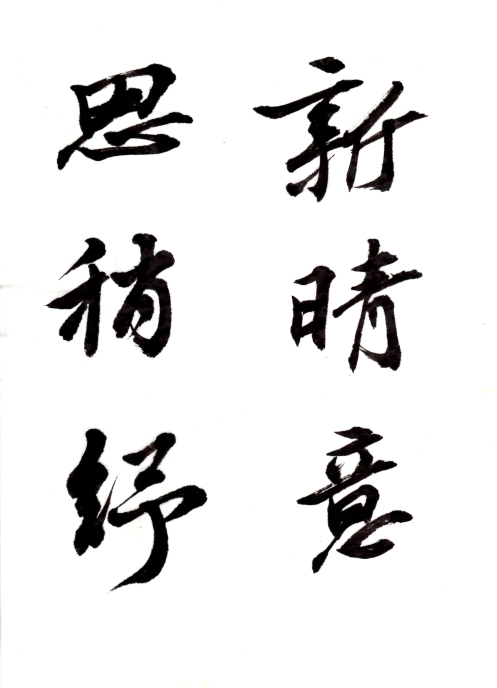 新晴意
思稍紓